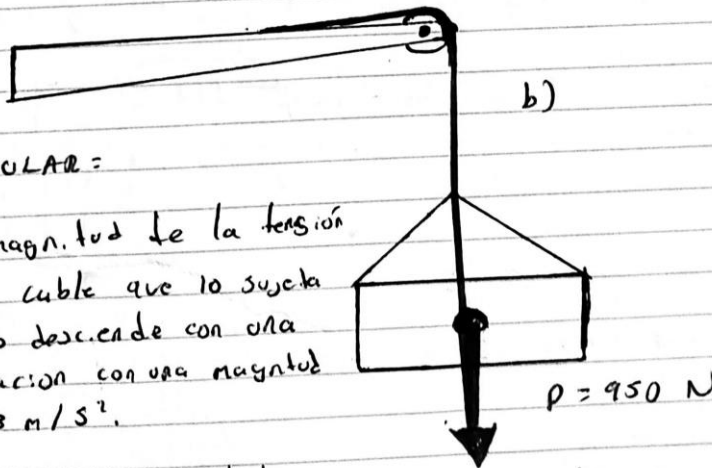 b)
ULAR =
magnitud de la tensión
cable que lo sujeta
desciende con una
ación con una magntud
3 m/s².
P = 950 N